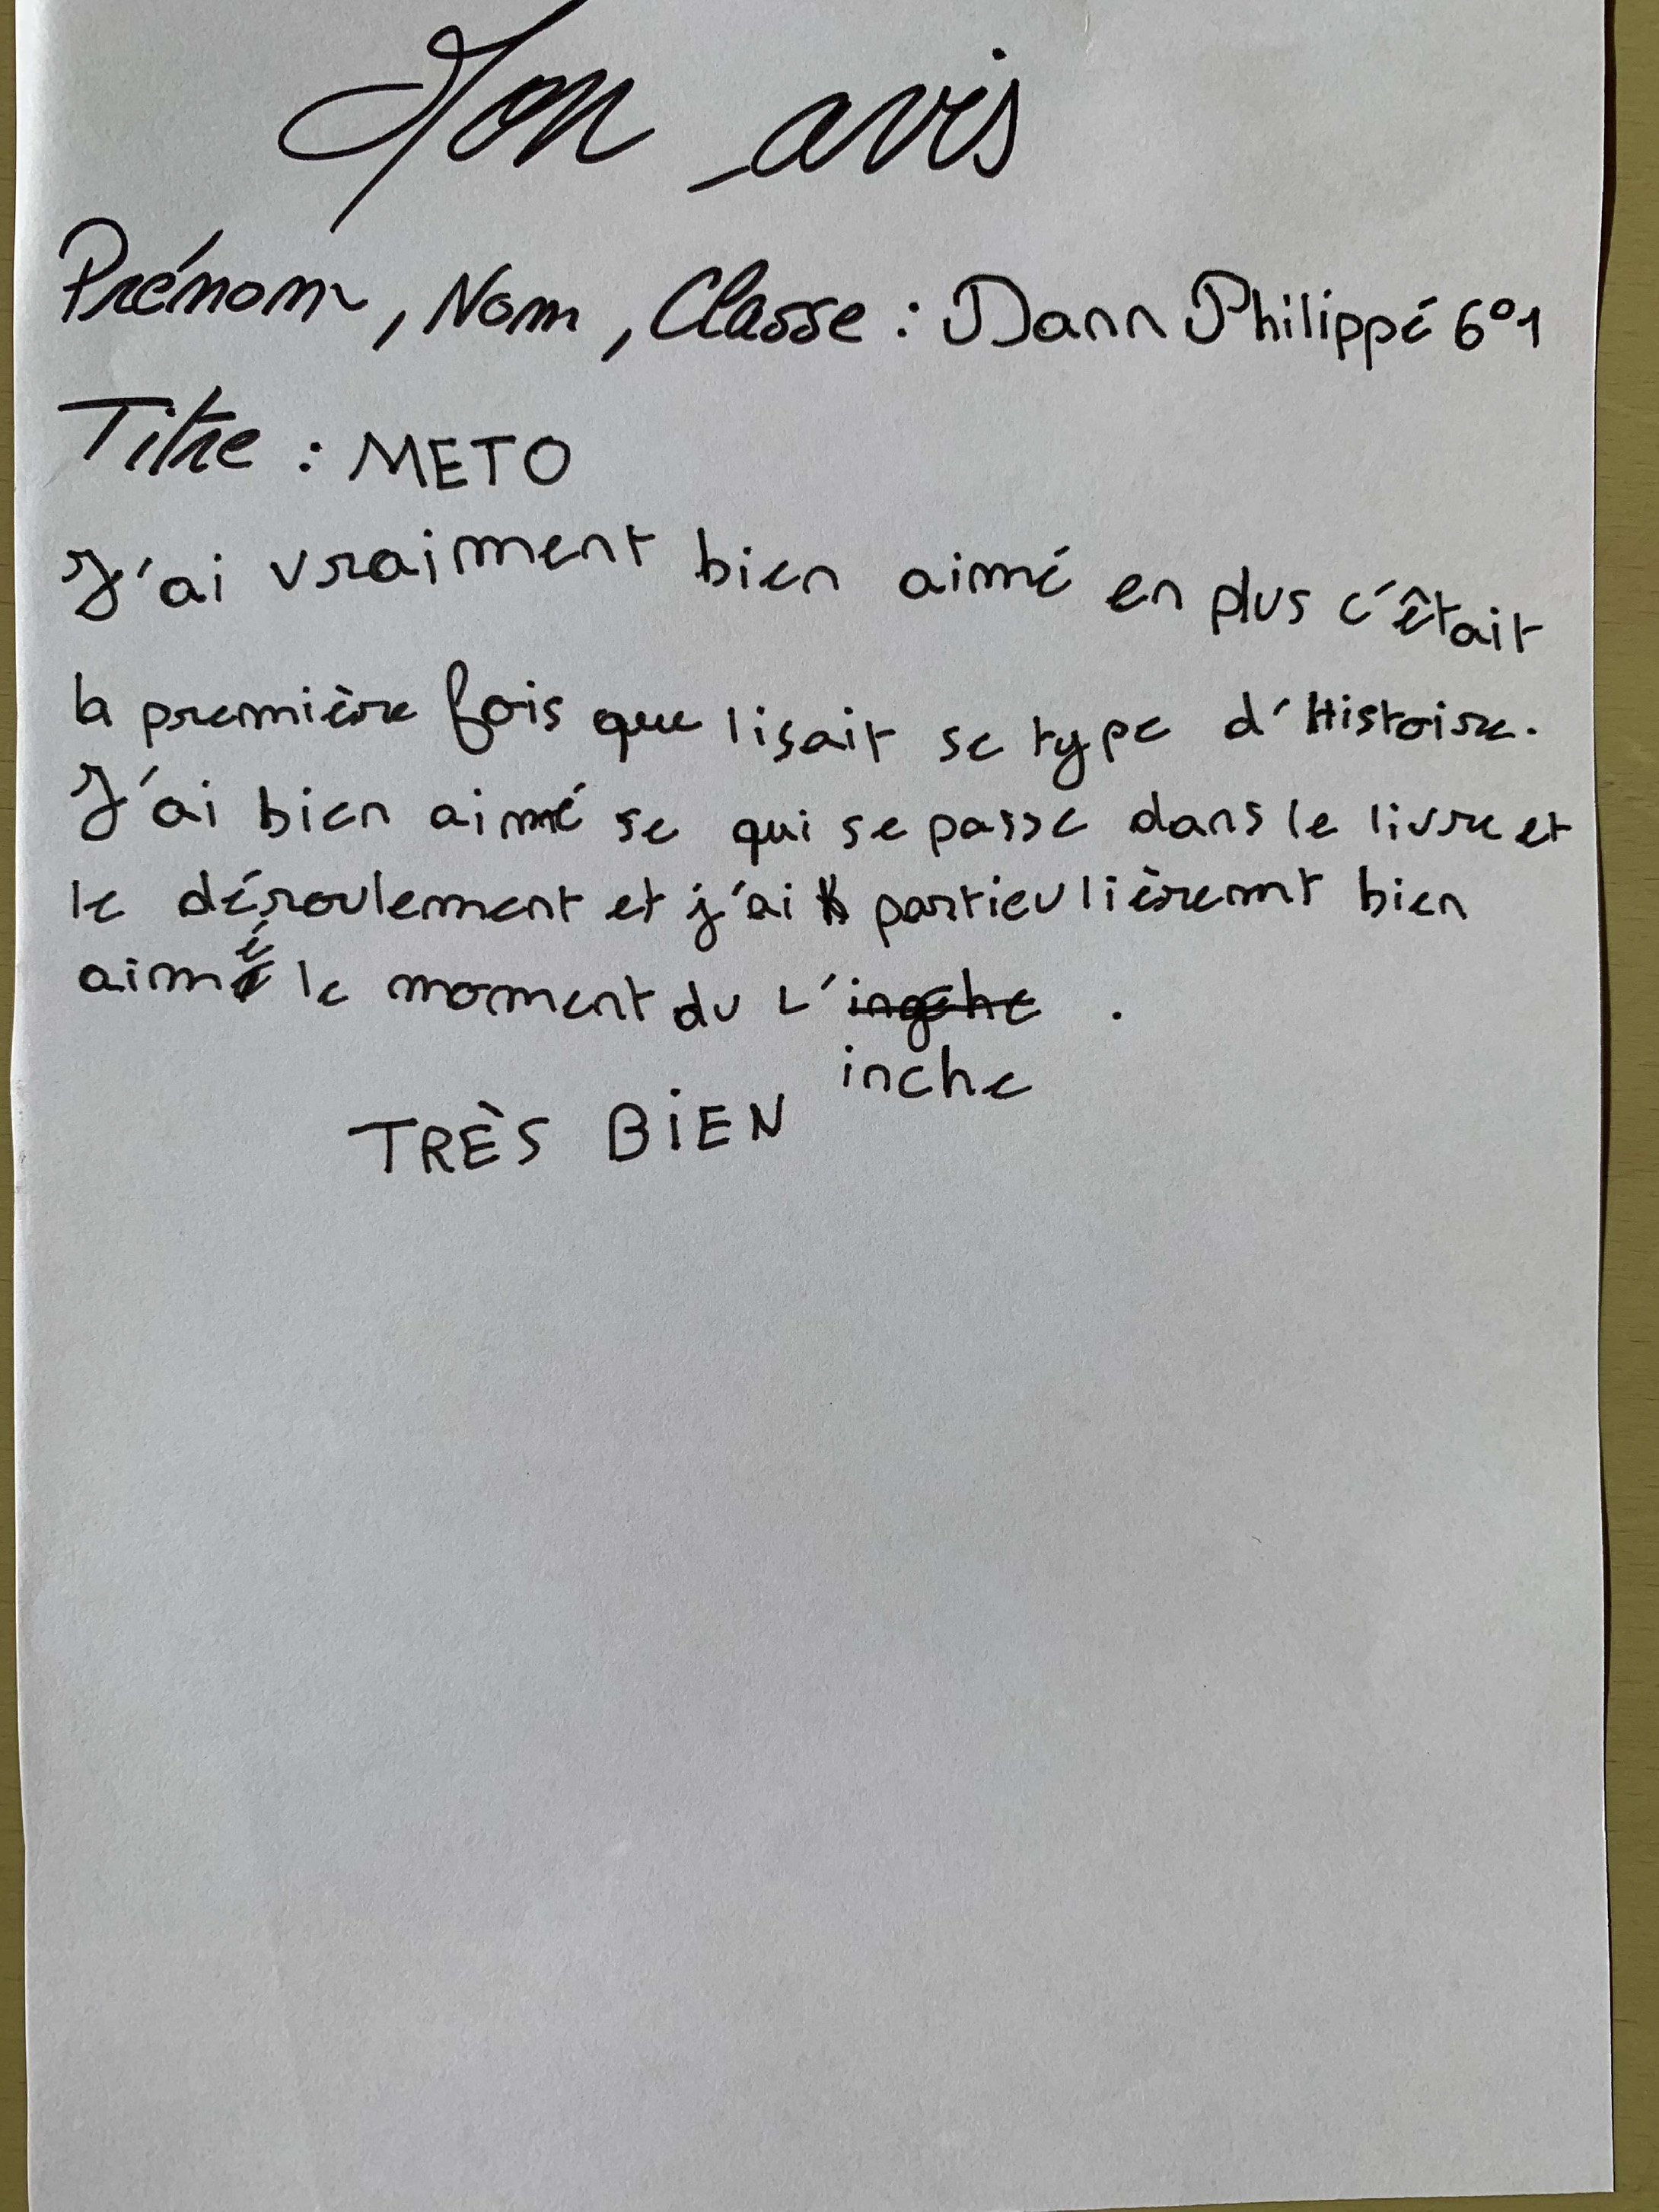 Mon avis
Prénom, Nom, Classe : Dann Philippé 6°1
Titre : METO
J'ai vraiment bien aimé en plus c'êtait
la première fois que lisait se type d'Histoire.
J'ai bien aimé se qui se passe dans le livre et
le déroulement et j'ai particulièremnt bien
aimé le moment du L' .
inche
TRÈS BIEN